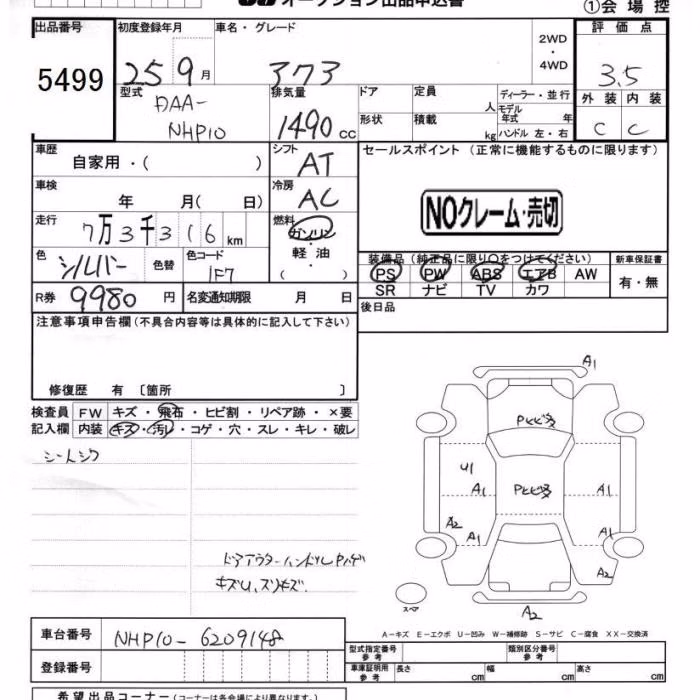 オークション出品申込書
①会場控
出品番号 初度登録年月 車名・グレード 2WD 評価点
5499 25 9月 373 ・4WD 3.5
型式 排気量 ドア 定員 人 ディーラー・並行 外装 内装
DAA- モデル年式 年
NHP10 1490 cc 形状 積載 kg ハンドル 左・右 C C
車歴 シフト セールスポイント (正常に機能するものに限ります)
自家用・( ) AT
車検 冷房
年 月( 日) AC NOクレーム・売切
走行 燃料
7万3千316km ガソリン
色 色替 色コード ・軽油 装備品(純正品に限り○をつけてください) 新車保証書
シルバー 1F7 ・( ) PS PW ABS エアB AW 有・無
R券 9980円 名変通知期限 月 日 SR ナビ TV カワ
注意事項申告欄(不具合内容等は具体的に記入して下さい) 後日品
修復歴 有〔箇所 〕
検査員 FW キズ・飛石・ヒビ割・リペア跡・×要
記入欄 内装 キズ・汚レ・コゲ・穴・スレ・キレ・破レ
シートシワ
A1
Pヒビ多
U1
A1 Pヒビ多 A1
A2
A1 A1
A2
スペア
A2
キズU、スリキズ.
A−キズ E−エクボ U−凹み W−補修跡 S−サビ C−腐食 XX−交換済
車台番号 NHP10-6209148
型式指定番号 参考 類別区分番号 参考
登録番号
車庫証明用 参考 長さ cm 幅 cm 高さ cm
希望出品コーナー(コーナーは各会場により異なります。)